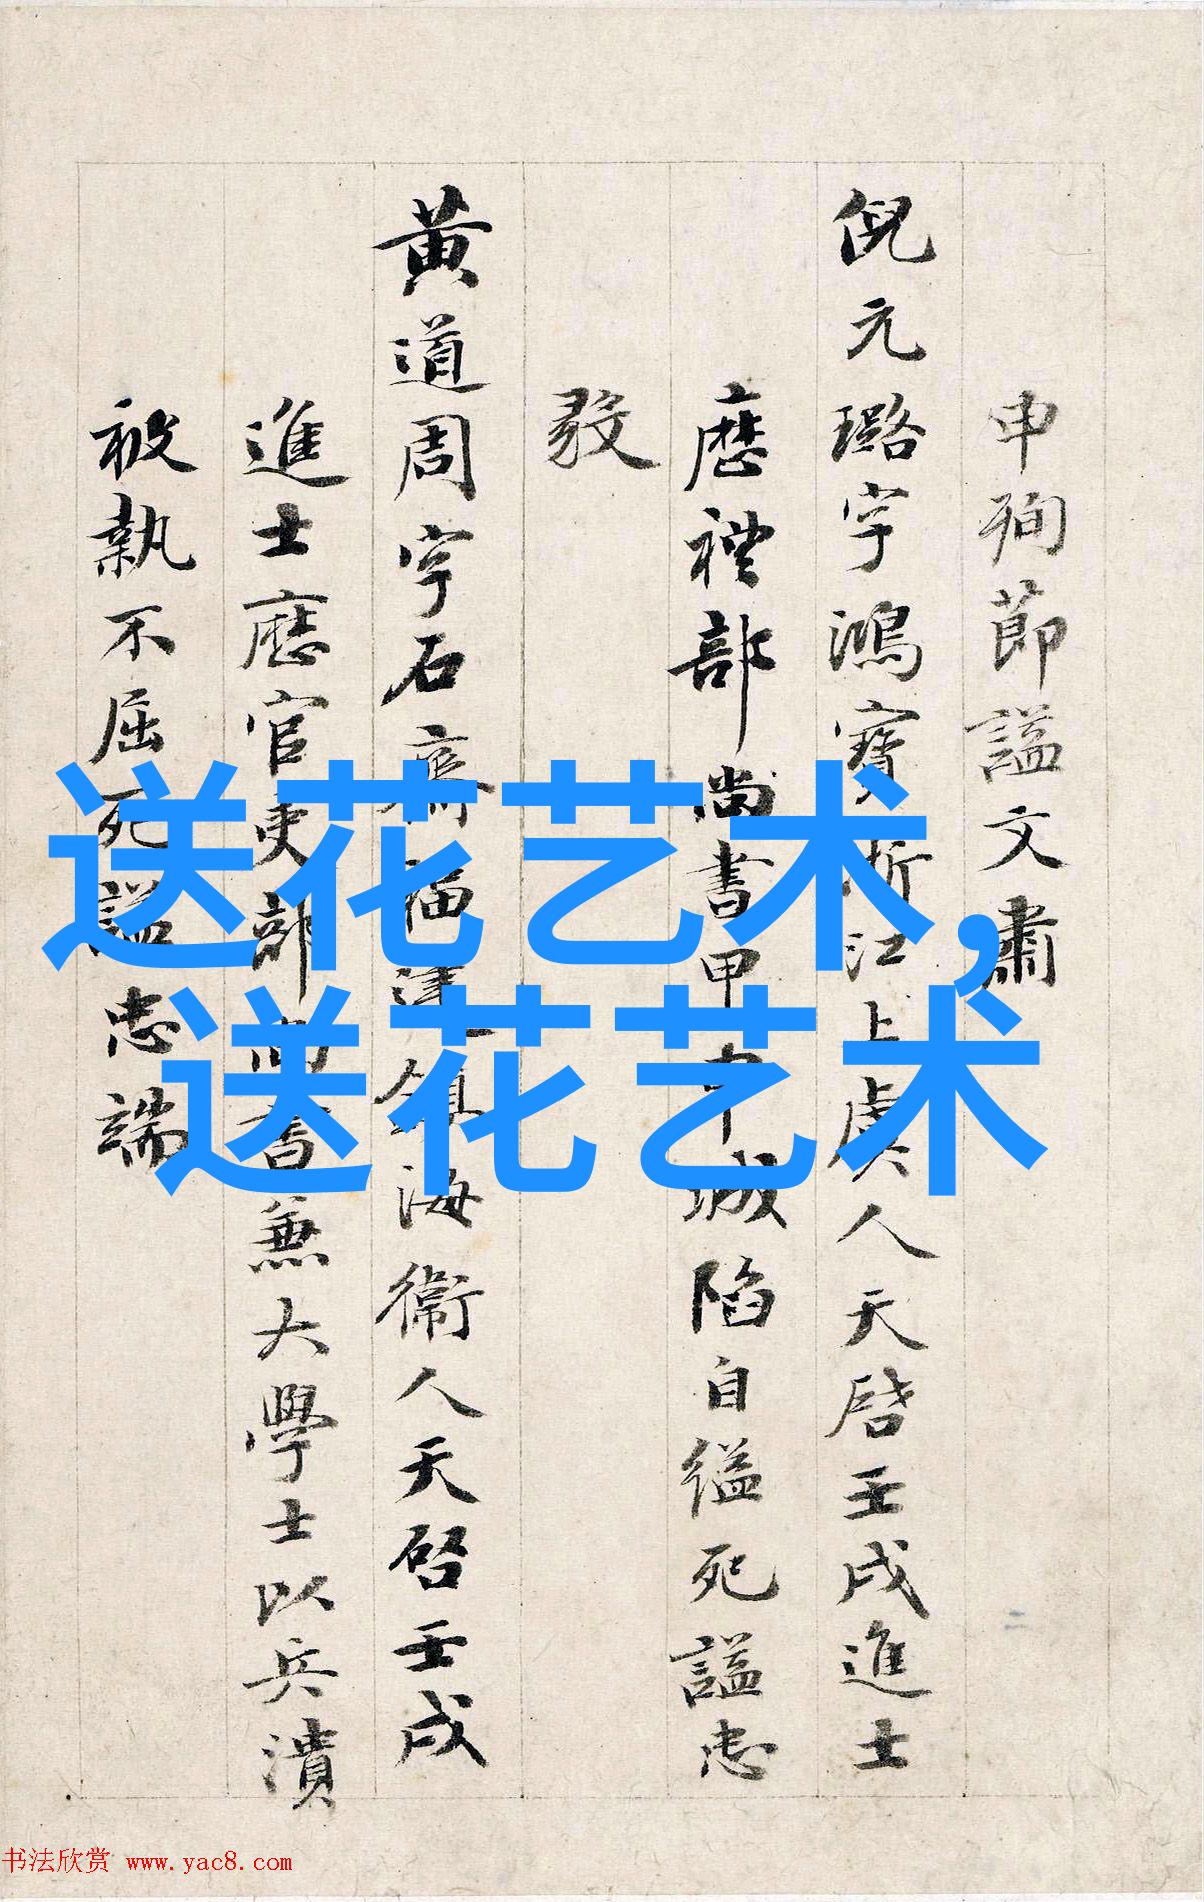 申殉節謚文肅
倪元璐字鴻寶浙江上虞人天啓壬戌進士
歷禮部尚書甲申城陷自縊死謚忠
黄道周字石齋福建鎮海衞人天啓壬戌
進士歷官吏部尚書兼大學士以兵潰
被執不屈死謚忠端
送花艺术,
送花艺术
书法欣赏 www.yac8.com